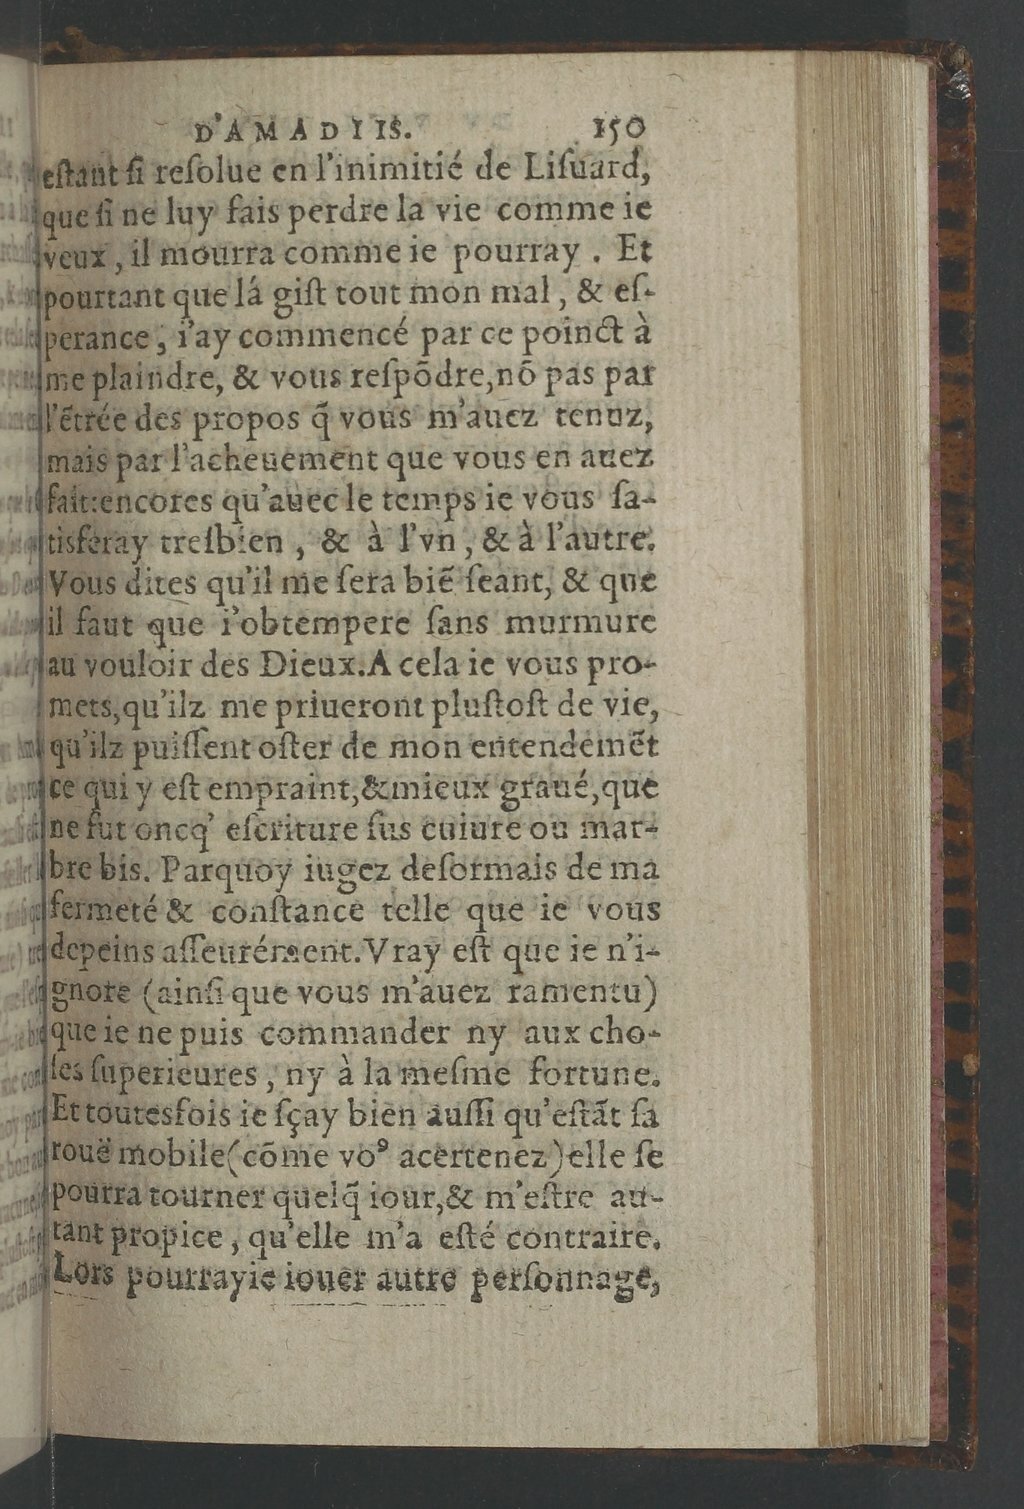 D'AMADIIS. 150
eſtant ſi reſolue en l'inimitié de Liſuard,
que ſi ne luy fais perdre la vie comme ie
veux, il mourra comme ie pourray. Et
pourtant que lá giſt tout mon mal, & eſ-
perance, i'ay commencé par ce poinct à
me plaindre, & vous reſpõdre, nõ pas par
l'ẽtrée des propos q̃ vous m'auez tenuz,
mais par l'acheuement que vous en auez
fait: encores qu'auec le temps ie vous ſa-
tisferay treſbien, & à l'vn, & à l'autre.
Vous dites qu'il me ſera biẽ ſeant, & que
il faut que i'obtempere ſans murmure
au vouloir des Dieux. A cela ie vous pro-
mets, qu'ilz me priueront pluſtoſt de vie,
qu'ilz puiſſent oſter de mon entendemẽt
ce qui y eſt empraint, & mieux graué, que
ne fut oncq' eſcriture ſus cuiure ou mar-
bre bis. Parquoy iugez deſormais de ma
fermeté & conſtance telle que ie vous
depeins aſſeurément. Vray eſt que ie n'i-
gnore (ainſi que vous m'auez ramentu)
que ie ne puis commander ny aux cho-
ſes ſuperieures, ny à la meſme fortune.
Et toutesfois ie ſçay bien auſſi qu'eſtãt ſa
rouë mobile (cõme voꝰ acertenez) elle ſe
pourra tourner quelq̃ iour, & m'eſtre au-
tant propice, qu'elle m'a eſté contraire.
Lors pourray ie iouër autre perſonnage,